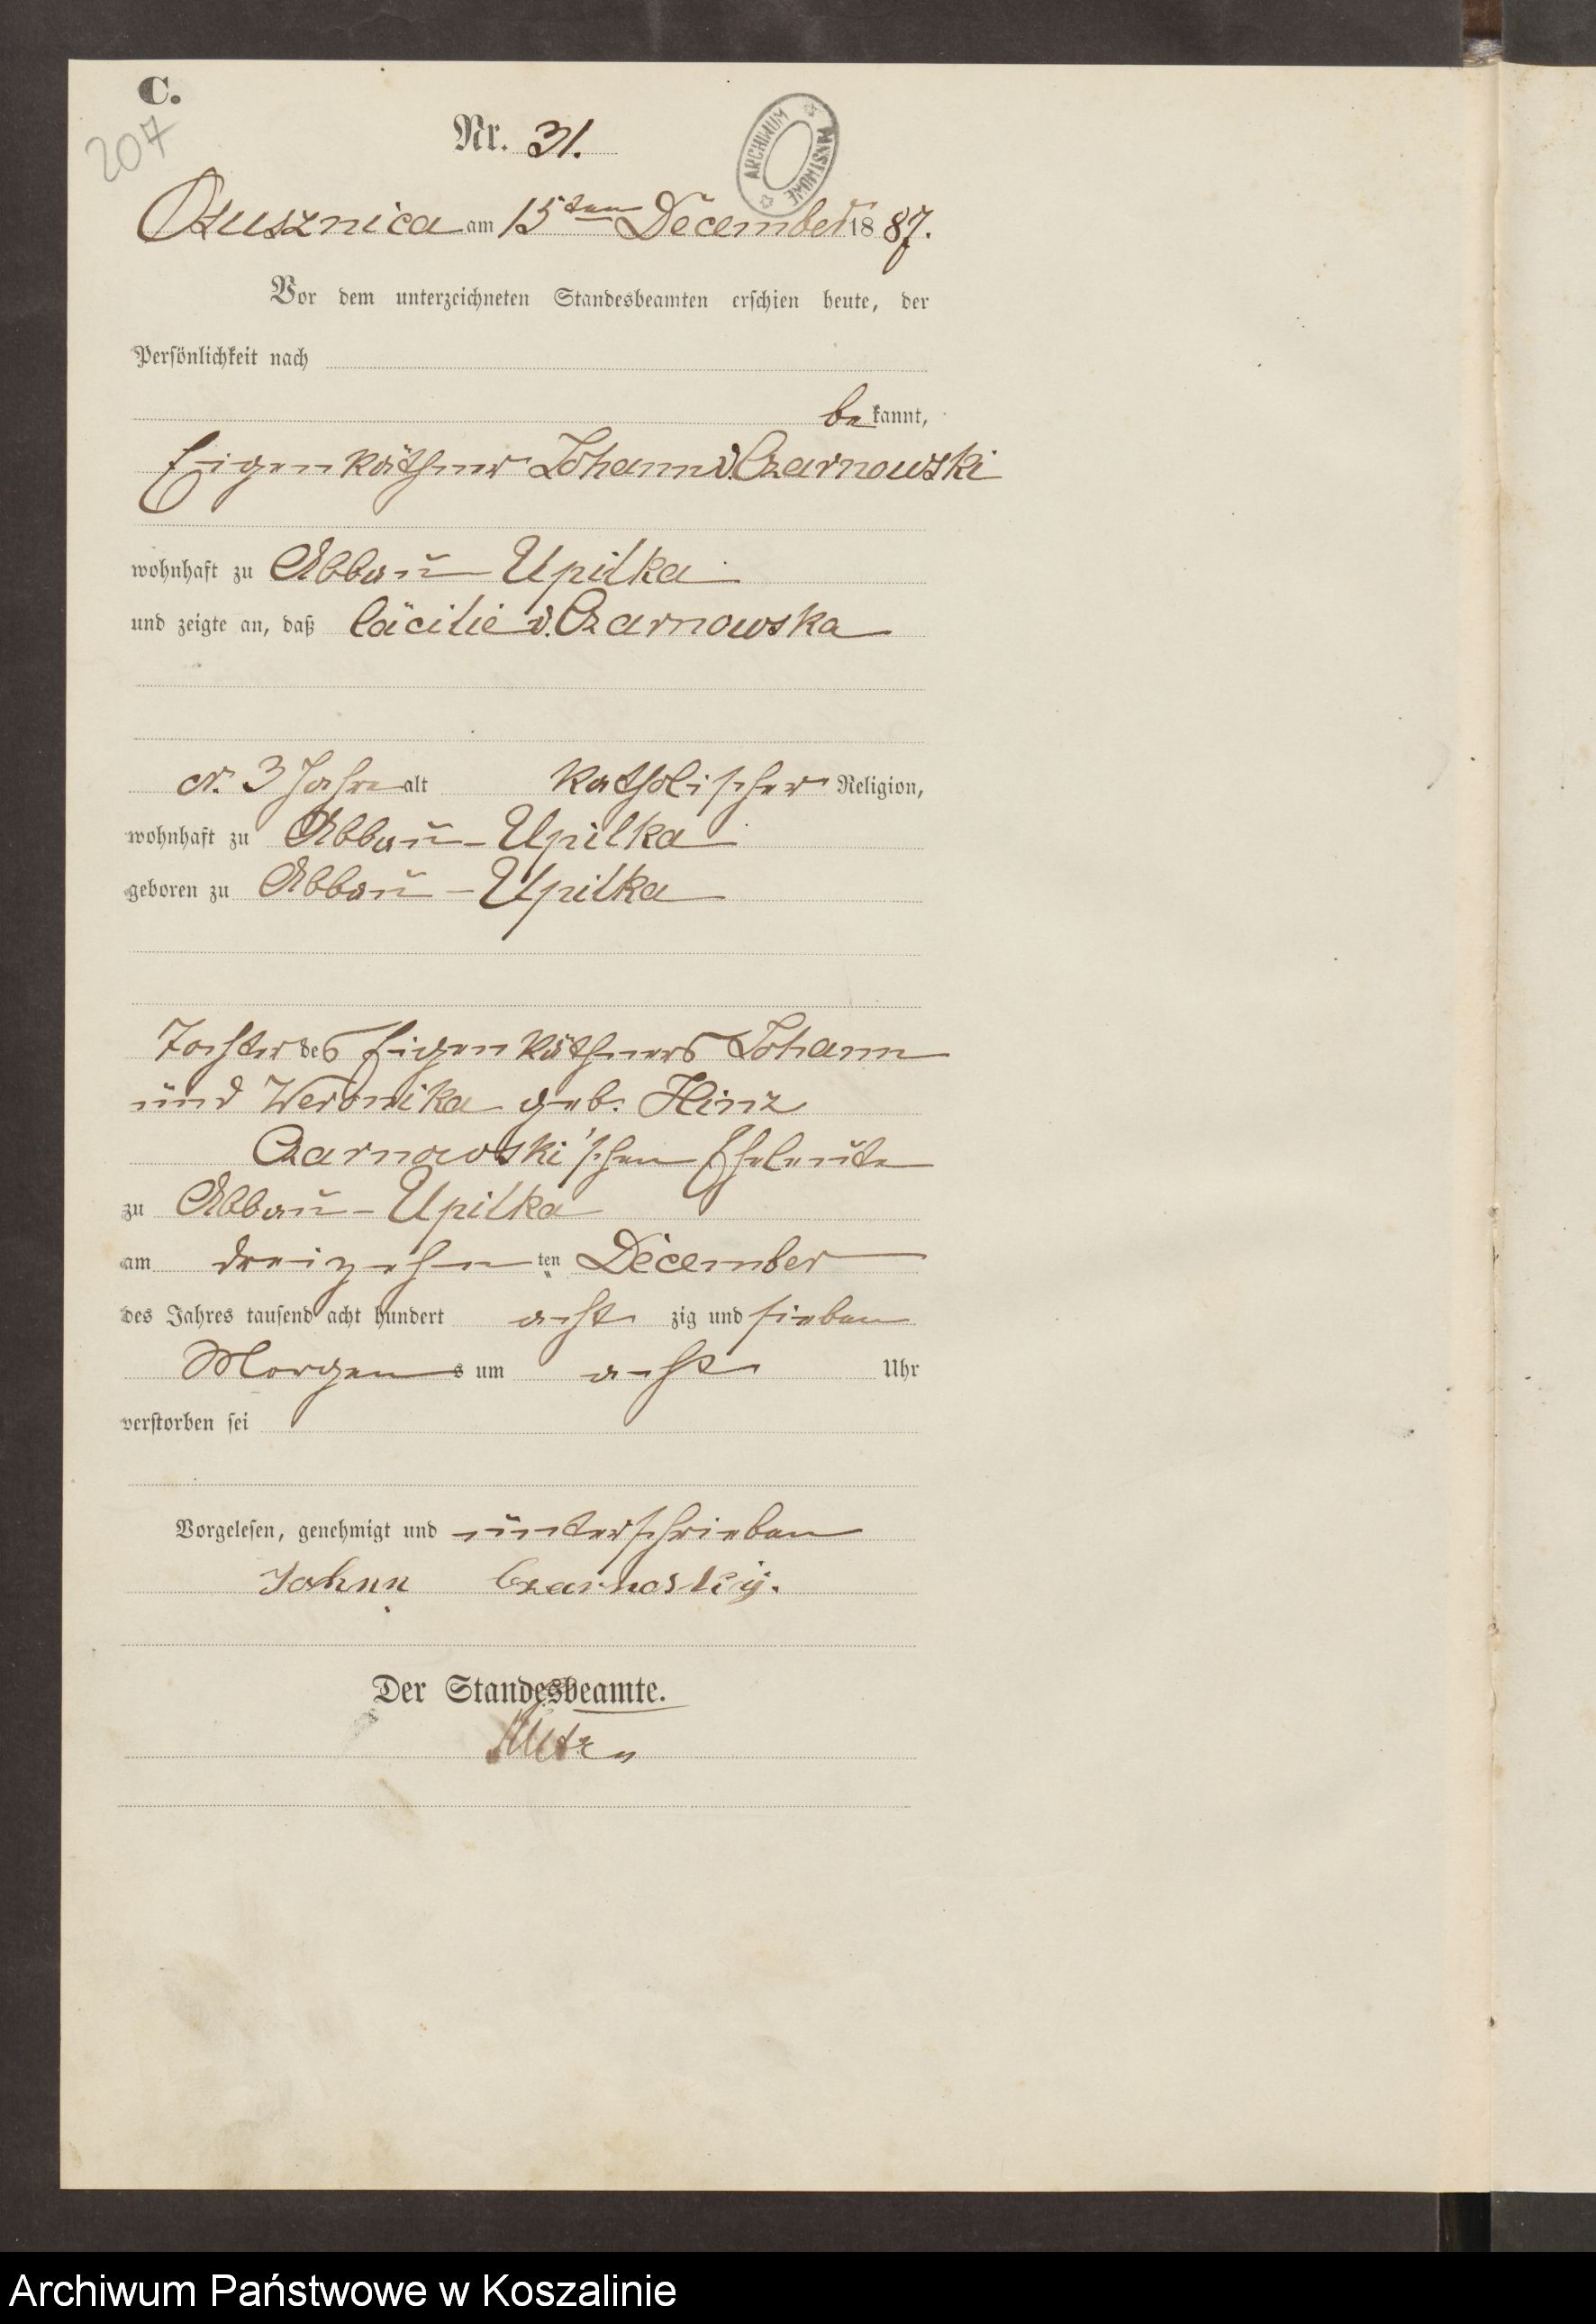 C.
207
Nr. 31.
ARCHIWUM PAŃSTWOWE
Osusznica am 15ten December 1887.
Vor dem unterzeichneten Standesbeamten erschien heute, der
Persönlichkeit nach
bekannt,
Eigenkäthner Johann v. Czarnowski
wohnhaft zu Abbau Upilka
und zeigte an, daß Cäcilie v. Czarnowska
3 Jahre alt katholischer Religion,
wohnhaft zu Abbau-Upilka
geboren zu Abbau-Upilka
Tochter des Eigenkäthners Johann
und Weronika geb. Hinz
Czarnowski'schen Eheleute
zu Abbau-Upilka
am dreizehn ten December
des Jahres tausend acht hundert acht zig und sieben
Morgens um acht Uhr
verstorben sei
Vorgelesen, genehmigt und unterschrieben
Johnn Czarnoskij.
Der Standesbeamte.
Archiwum Państwowe w Koszalinie